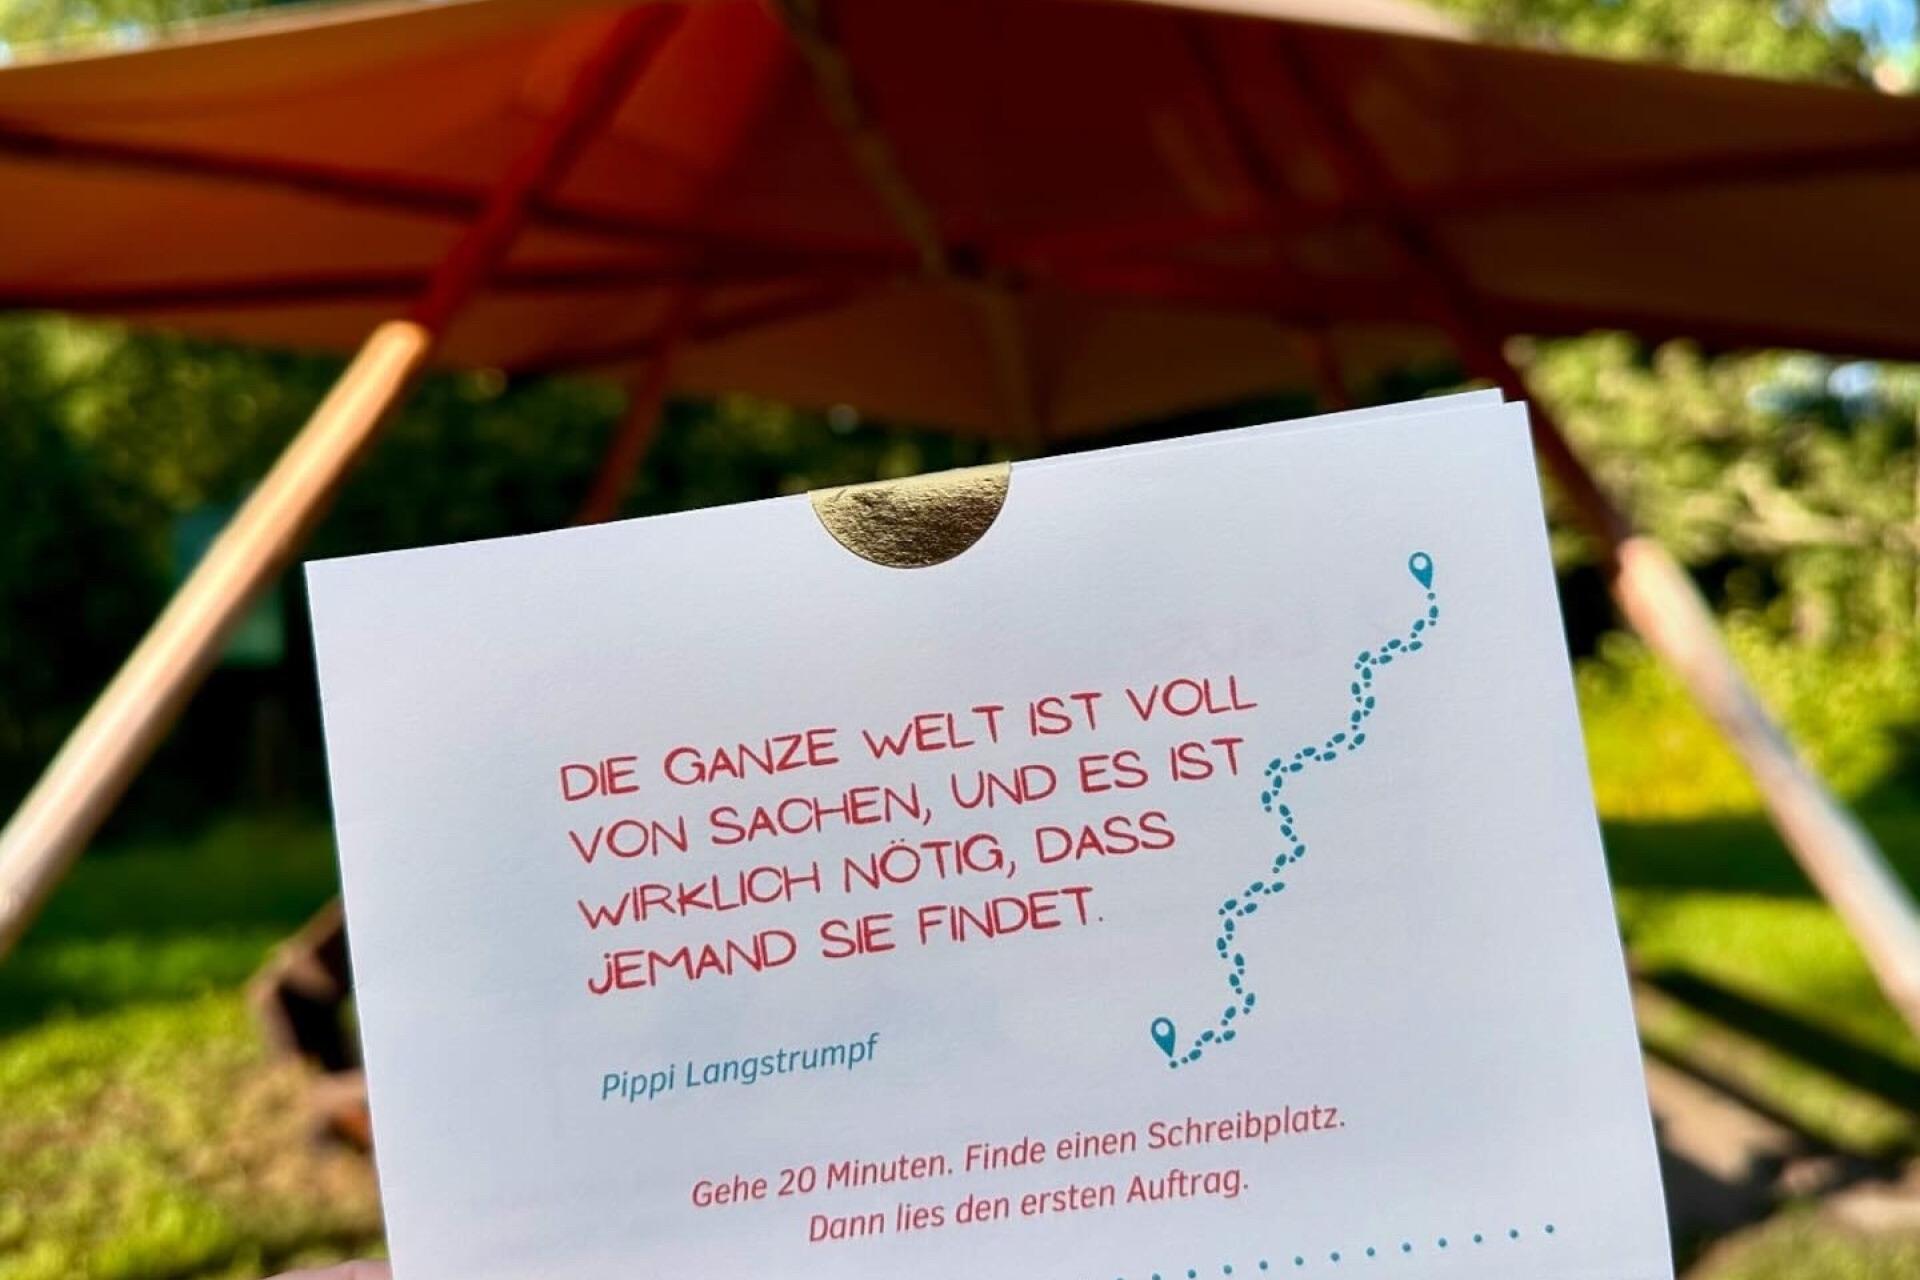 DIE GANZE WELT IST VOLL
VON SACHEN, UND ES IST
WIRKLICH NÖTIG, DASS
JEMAND SIE FINDET.
Pippi Langstrumpf
Gehe 20 Minuten. Finde einen Schreibplatz.
Dann lies den ersten Auftrag.